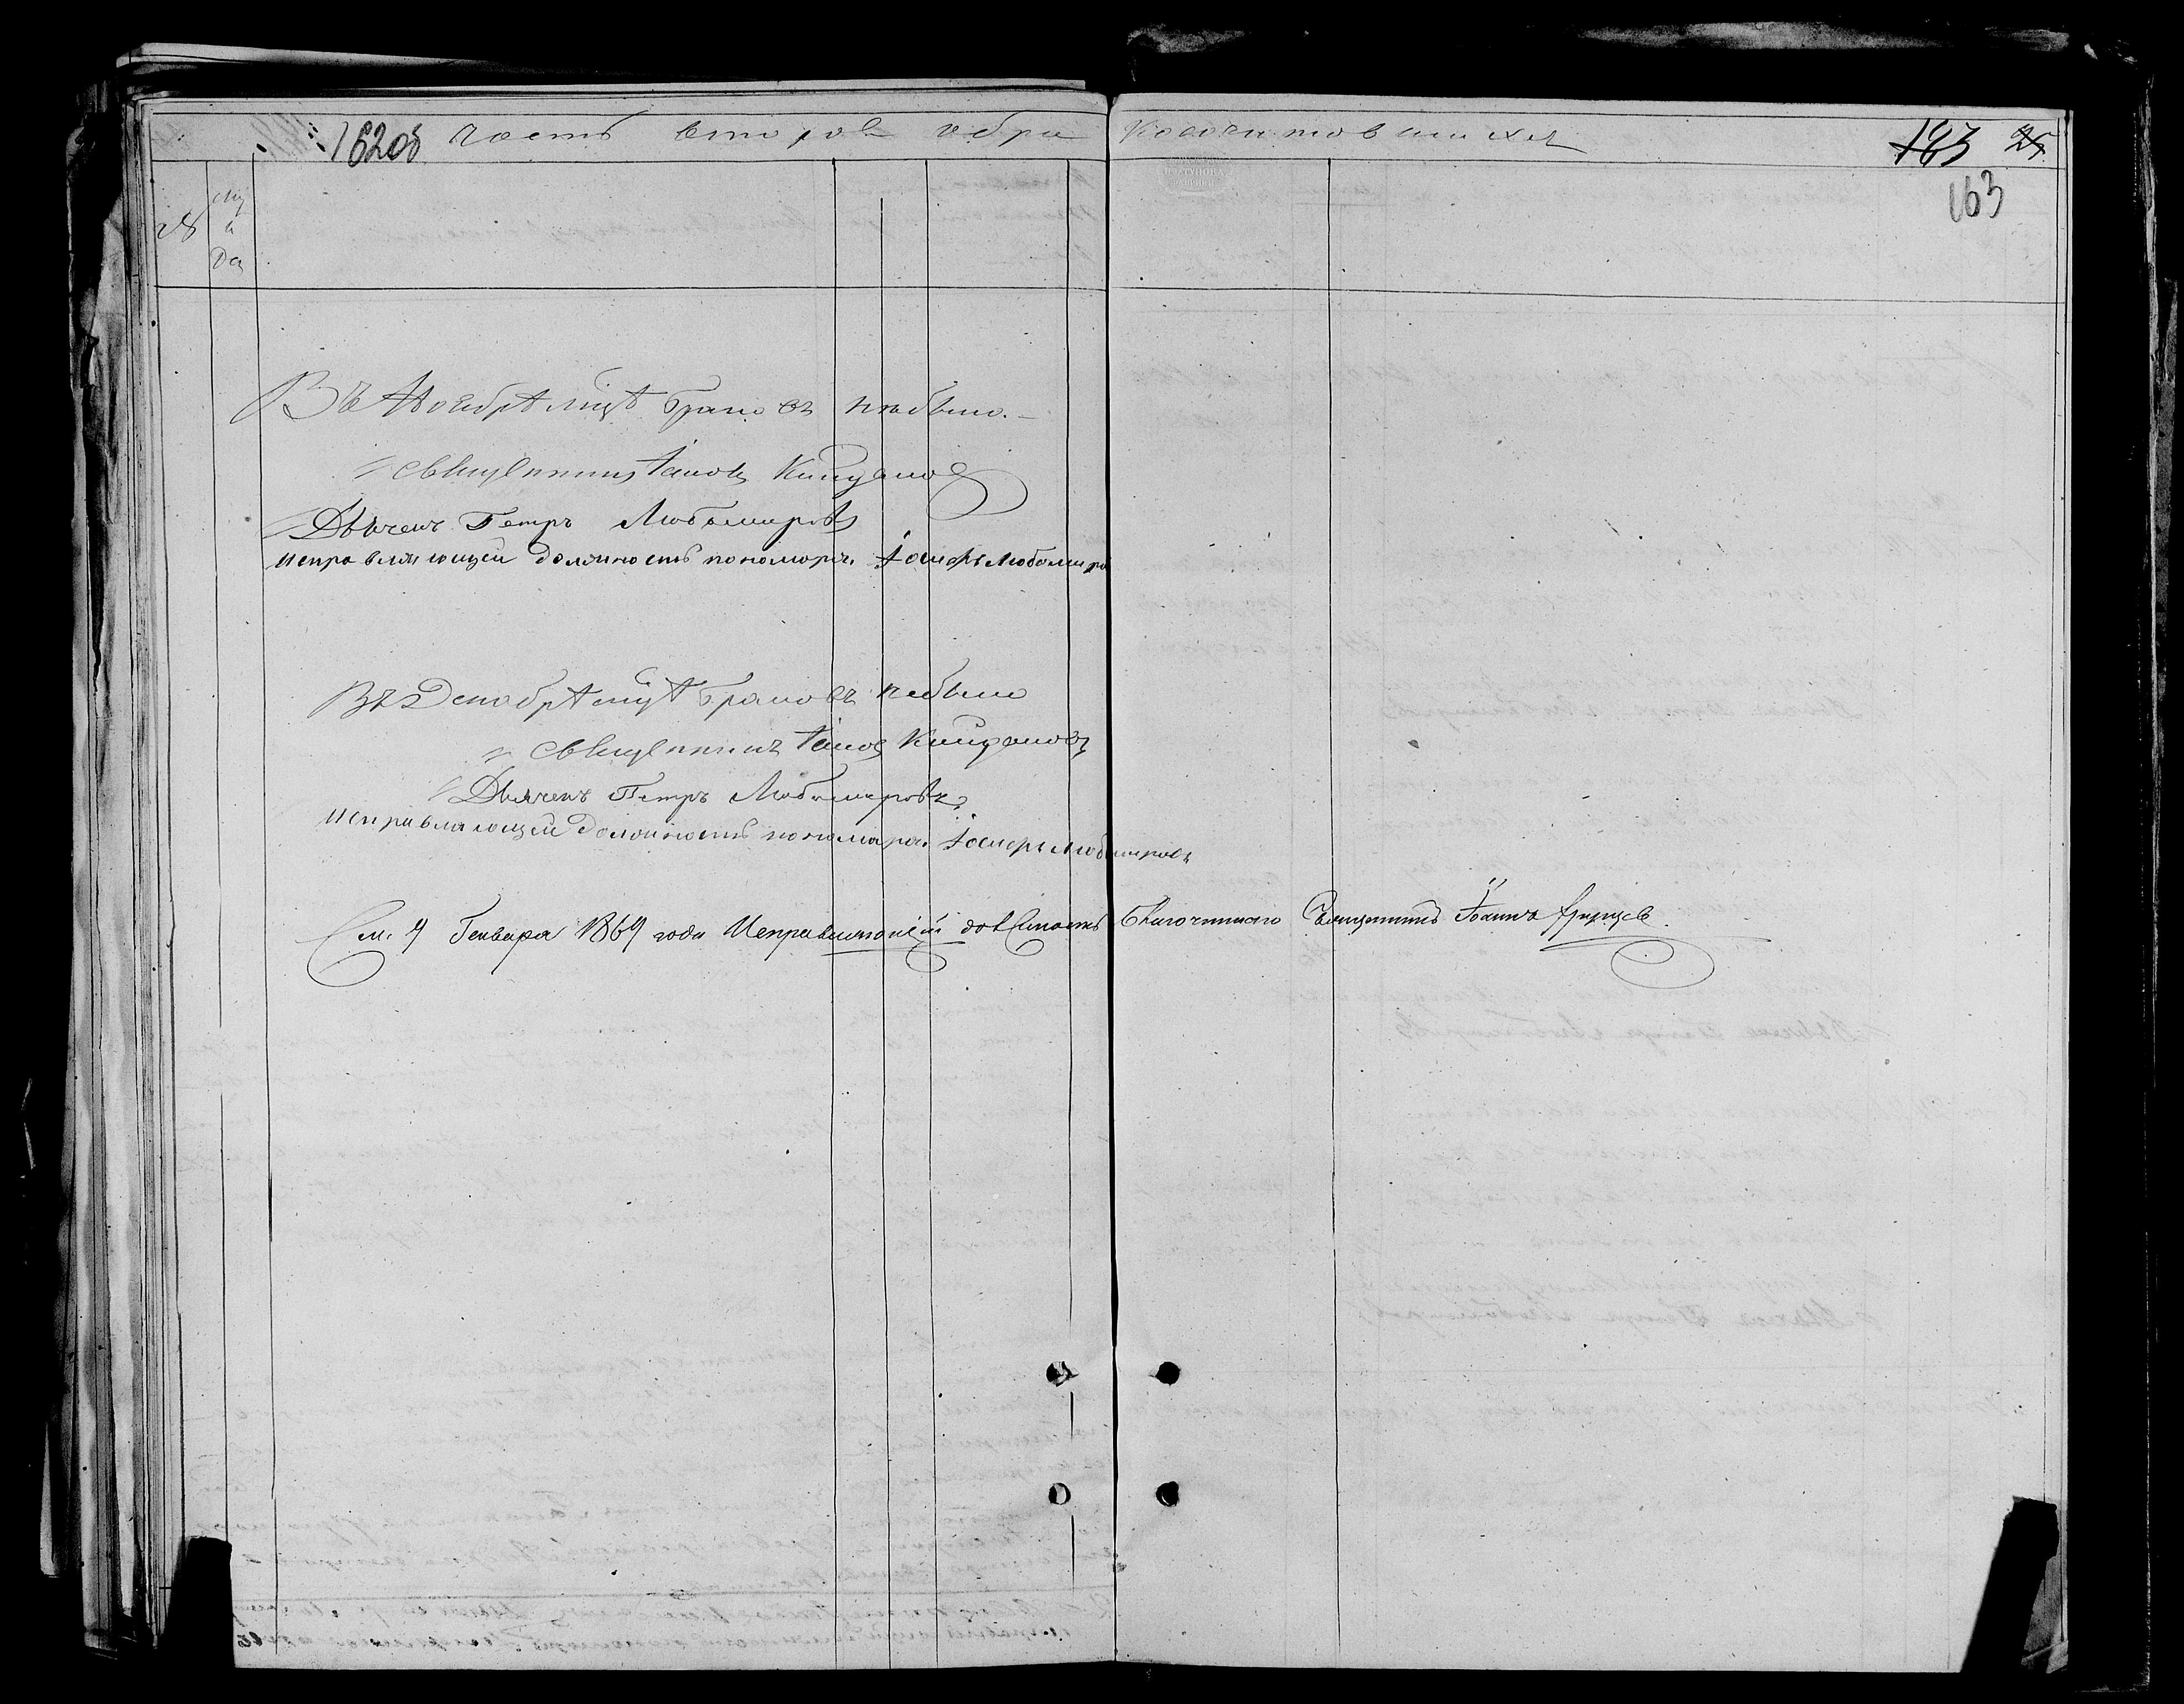 162об часть вторая обра косочитовшихся 183 25
163
м-ц
и
де
Въ Ноебрѣ мцѣ браковъ небыло.
Священникъ Іаковъ
Дьячекъ Петръ Любомировъ
Исправляющей должность пономаря Іосифъ Любомиров
Въ Декабрѣ мцѣ браковъ небыло
Священникъ Іаковъ
Дьячекъ Петръ Любомировъ
Исправляющей должность пономаря Іосифъ Любомировъ
См. 9 Генваря 1869 года Исправляющій должность Благочиннаго Священникъ Іоаннъ